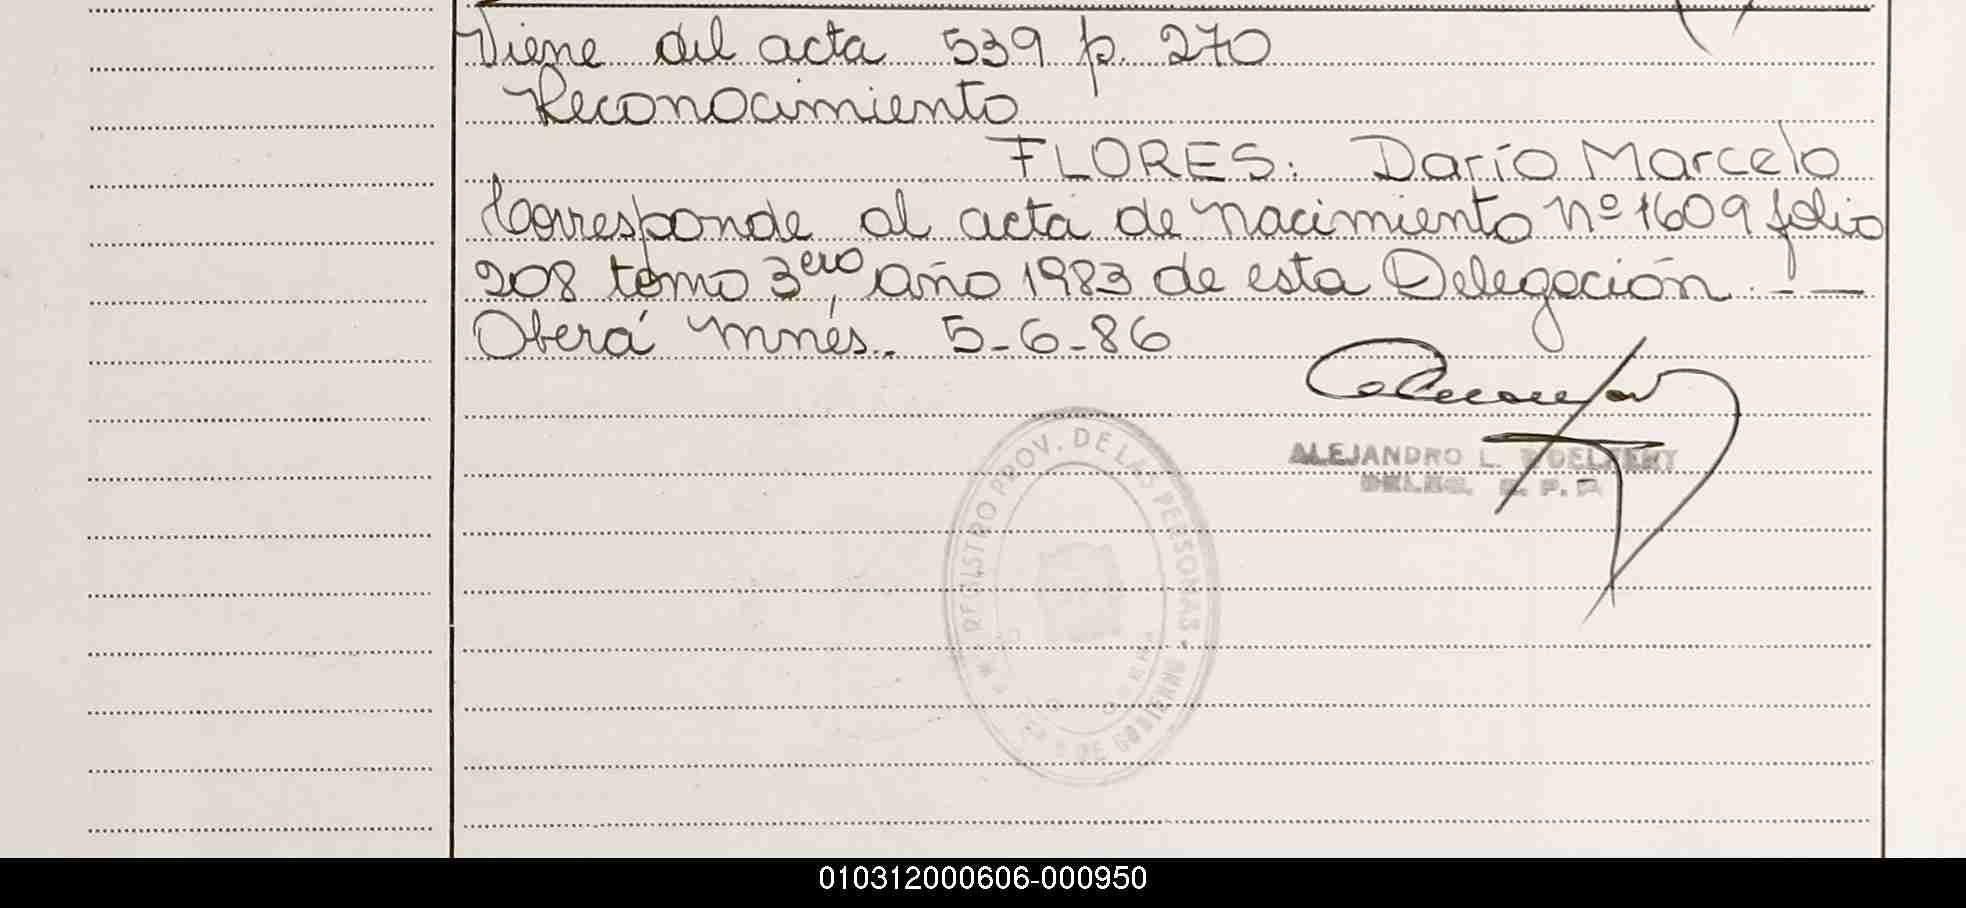 Viene del acta 539 p. 270
Reconocimiento
FLORES: Darío Marcelo
Corresponde al acta de nacimiento nº 1609 folio
208 tomo 3ero, año 1983 de esta Delegación. - —
Oberá Mnés. 5-6-86
ALEJANDRO L.
REGISTRO PROV. DE LAS PERSONAS
DE GOBIERNO
010312000606-000950